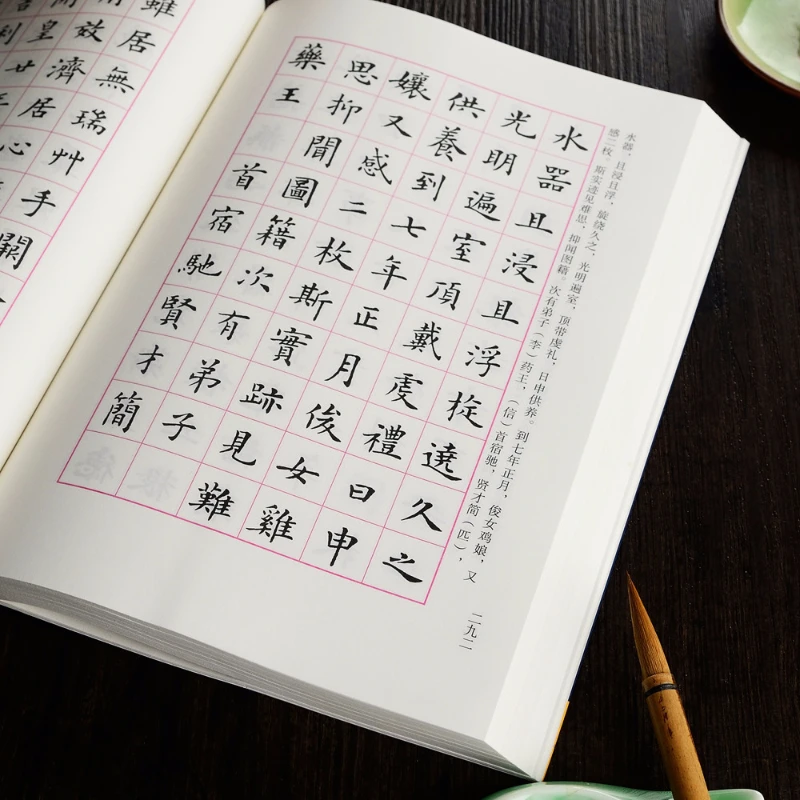 水器且浸且浮掟遶久之
光明遍室頂戴虔禮日申
供養到七年正月俊女雞
孃又感二枚斯實跡見難
思抑聞圖籍次有弟子
藥王 首宿馳賢才簡
水器，且浸且浮，旋绕久之，光明遍室，顶带虔礼，日申供养。到七年正月，俊女鸡娘，又
感二枚。斯实迹见难思，抑闻图籍。次有弟子（李）药王，（信）首宿驰，贤才简（匹），
二九二
雖居無瑞艸手闕
放濟居心
皇廿